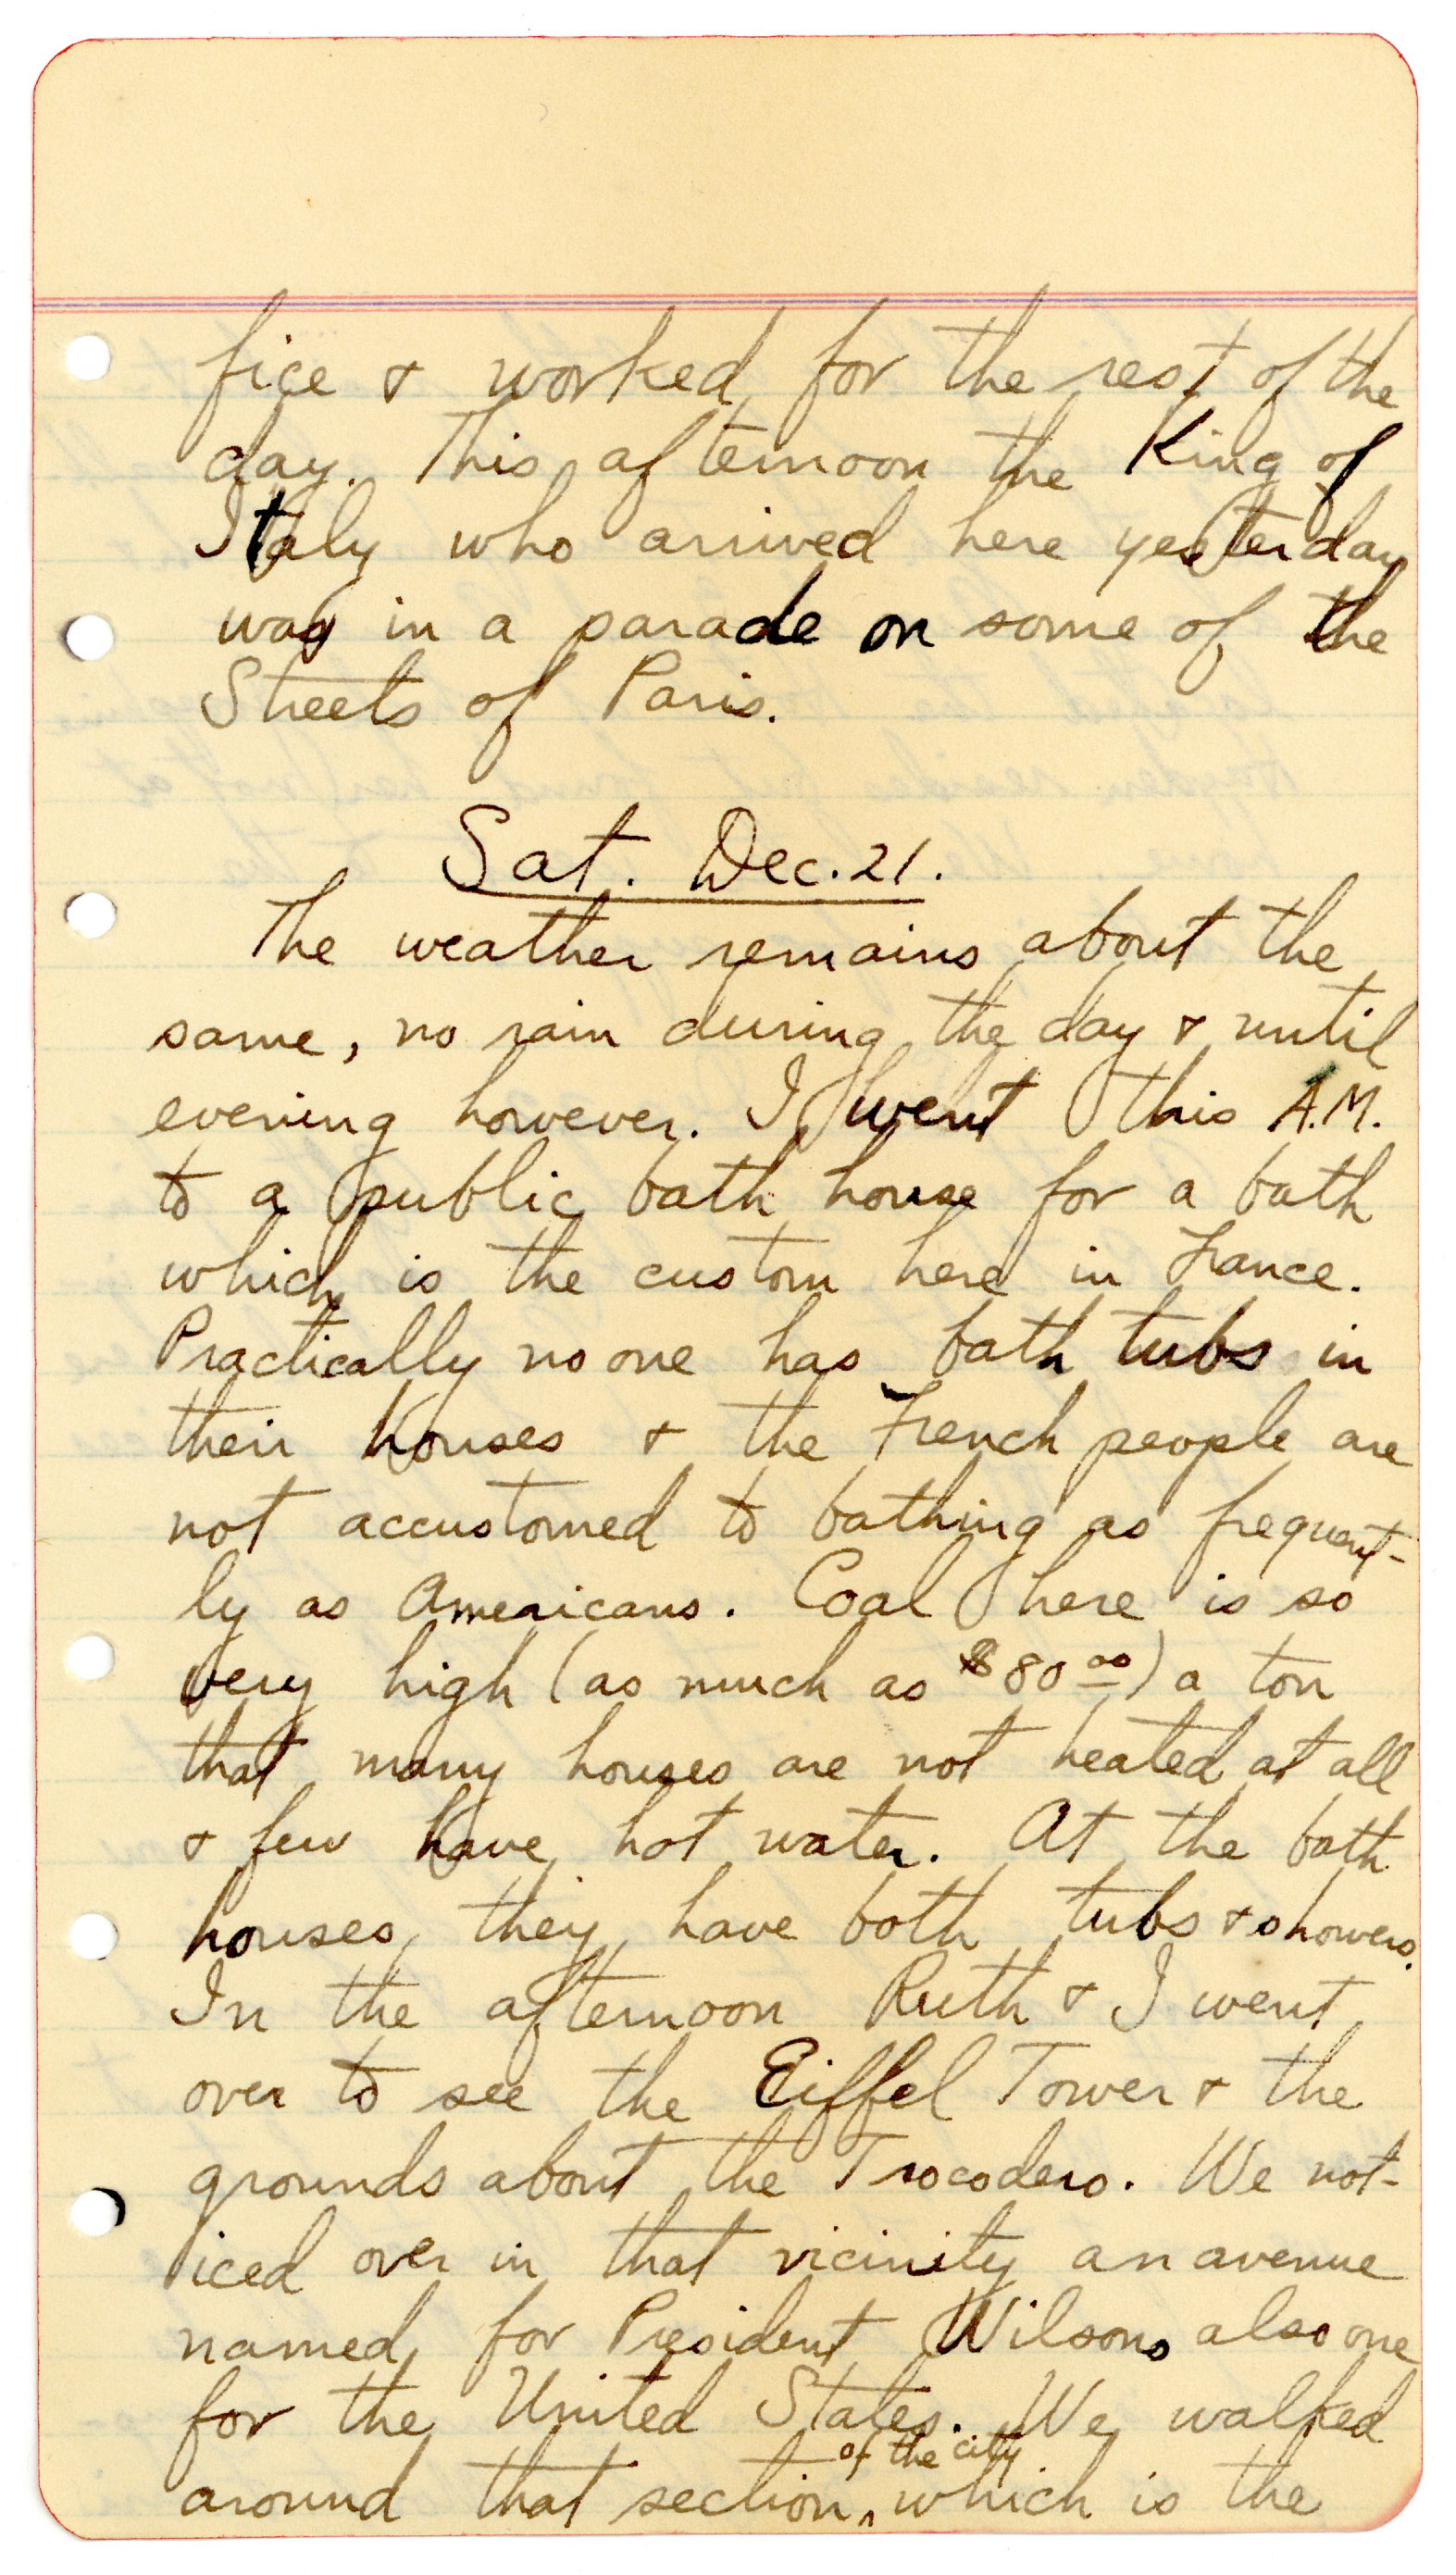 fice & worked for the rest of the
day. This afternoon the King of
Italy who arrived here yesterday
was in a parade on some of the
Streets of Paris.
Sat. Dec. 21.
The weather remains about the
same, no rain during the day & until
evening however. I went this A.M.
to a public bath house for a bath
which is the custom here in France.
Practically no one has bath tubs in
their houses & the French people are
not accustomed to bathing as frequent-
ly as Americans. Coal here is so
very high (as much as $80 00) a ton
that many houses are not heated at all
& few have hot water. At the bath
houses they have both tubs & showers.
In the afternoon Ruth & I went
over to see the Eiffel Tower & the
grounds about the Trocodero. We not-
iced over in that vicinity an avenue
named for President Wilsons also one
for the United States. We walked
of the city
around that section, which is the